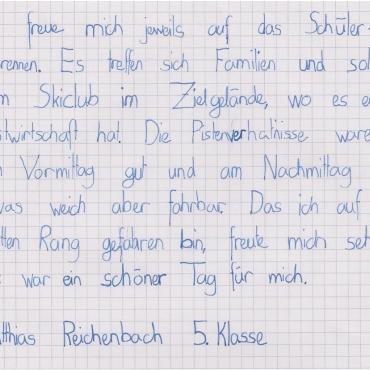 freue mich jeweils auf das Schüler-
rennen. Es treffen sich Familien und sol
m Skiclub im Zielgelände, wo es e
stwirtschaft hat. Die Pistenverhältnisse ware
Vormittag gut und am Nachmittag
was weich aber fahrbar. Das ich auf
tten Rang gefahren bin, freute mich seh
s war ein schöner Tag für mich.
tthias Reichenbach 5. Klasse